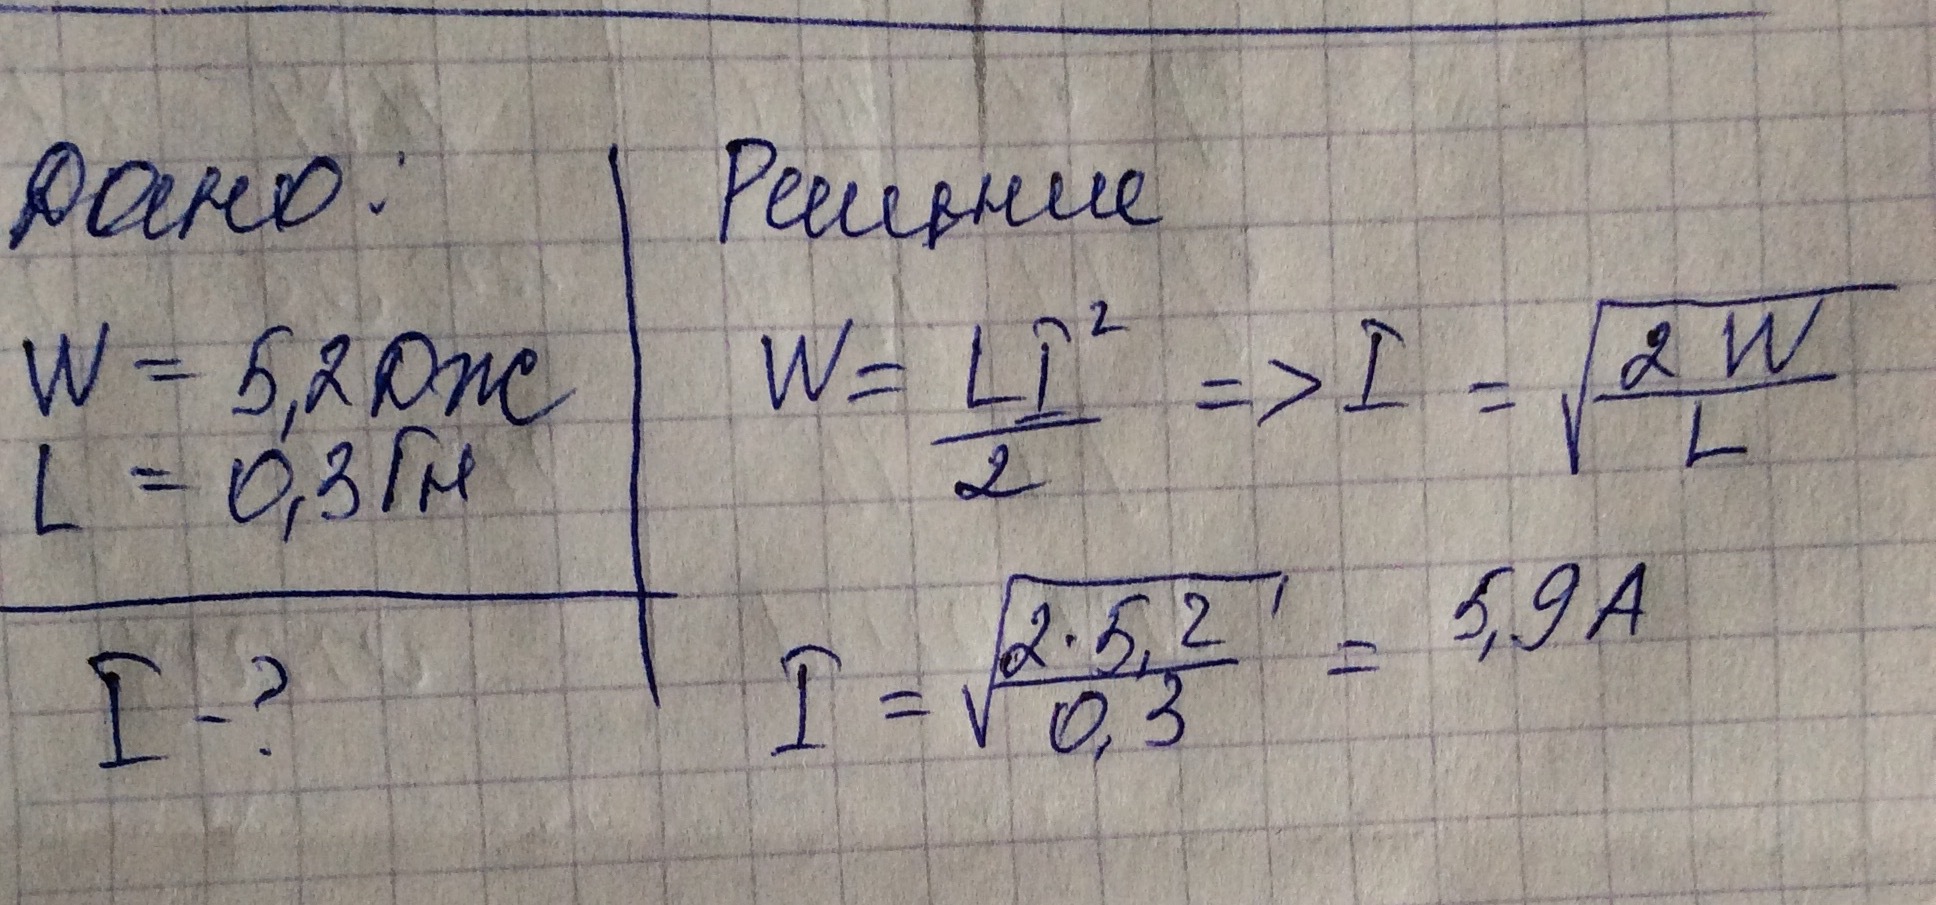 Дано:
W = 5,2 Дж
L = 0,3 Гн
I - ?
Решение
W = LI²/2 => I = √(2W/L)
I = √(2·5,2/0,3) = 5,9 A